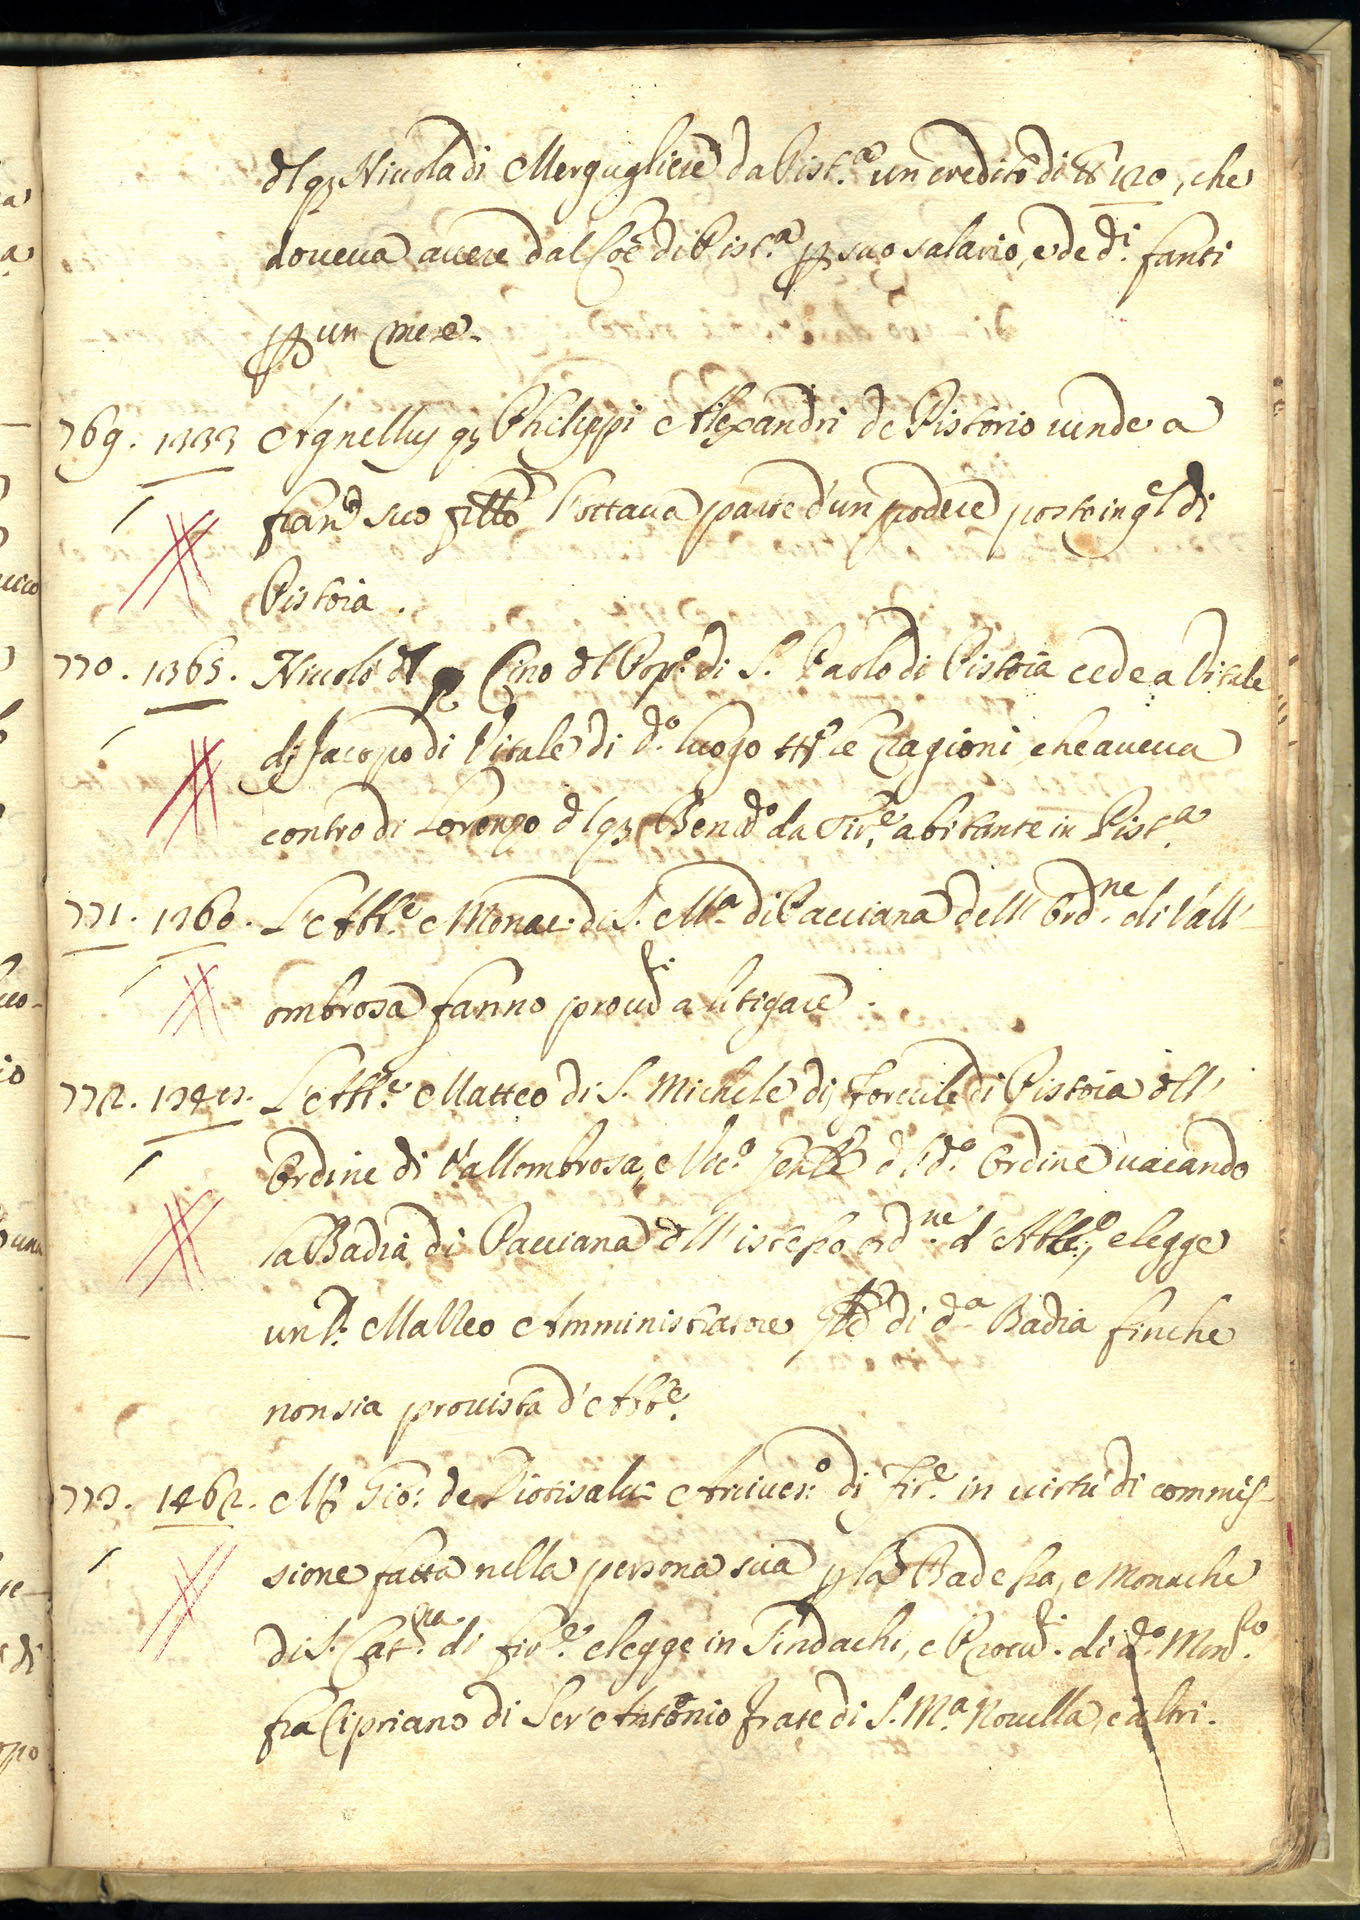 dl qᵐ Nicola di Mergugliese da Pist.ᵃ un credito di 120, che
doveva avere dal Coē di Pist.ᵃ p suo salario, e de dⁱ. fanti
p un mese.
769. 1333 Agnellus qᵐ Philippi Alexandri de Pistorio vende a
suo l'ottava parte d'un podere posto in di
Pistoia.
770. 1365. Nicolò dl Cino dl Pop.º di S. Paolo di Pistoia cede a Vitale
di Jacopo di Vitale di dº. luogo ttᵉ le ragioni, che aveva
contro di Lorenzo dl qᵐ Bened.º da Fir.ᵉ abitante in Pist.ᵃ
771. 1360. L'Abb.ᵉ e Monac. di S. Mᵃ di Pacciana dell' Ordⁿᵉ di Vall'
ombrosa fanno procurⁱ a litigare.
772. L'Abb.ᵉ Matteo di S. Michele di Forcole di Pistoia dll'
Ordine di Vallombrosa, e Vic.º dl dº. Ordine vacando
la Badia di Pacciana dll' istesso ordⁿᵉ. d'Abb.ᵉ, elegge
un P. Matteo Amministratore di dᵃ Badia finche
non sia provista d'Abb.ᵉ
773. 1462. Gio: de Diotisalvi Arcives.º di Fir.ᵉ in virtù di commis-
sione fatta nella persona sua p la Badessa, e Monache
di S. Catⁿᵃ di Fir.ᵉ elegge in Sindachi, e Procurⁱ. di dº. Monʳᵒ.
fra Cipriano di Ser Antonio frate di S. Mᵃ. Novella, e altri.